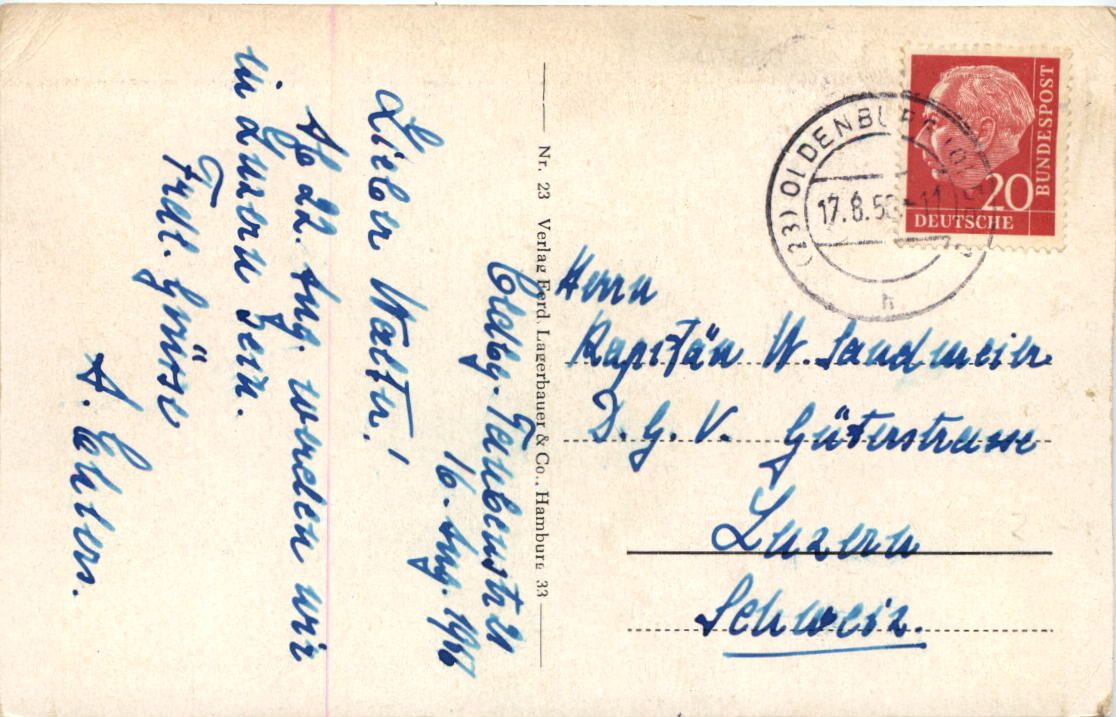 Oldbg. Taubenstr 21
16. Aug. 1956
Lieber Walter!
Ab 22. Aug. werden wir
in Luzern sein.
Frdl. Grüsse
A. Ehlers.
Nr. 23 Verlag Ferd. Lagerbauer & Co., Hamburg 33
(23) OLDENBURG (O
17.8.56-11
h
20
DEUTSCHE
BUNDESPOST
Herrn
Kapitän W. Sandmeier
D.G.V. Güterstrasse
Luzern
Schweiz.